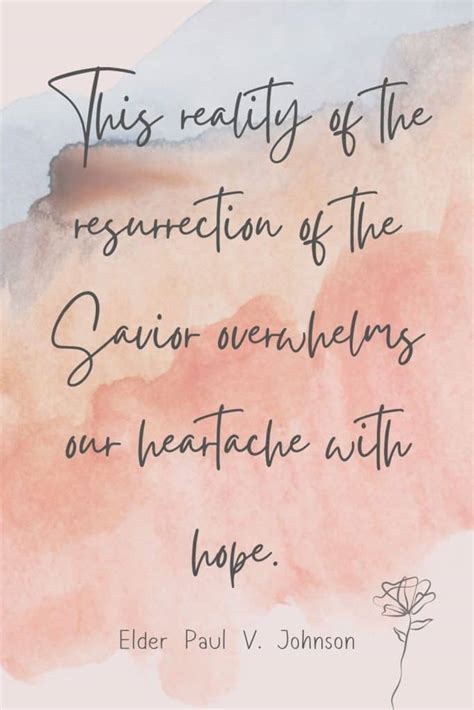 This reality of the
resurrection of the
Savior overwhelms
our heartache with
hope.
Elder Paul V. Johnson